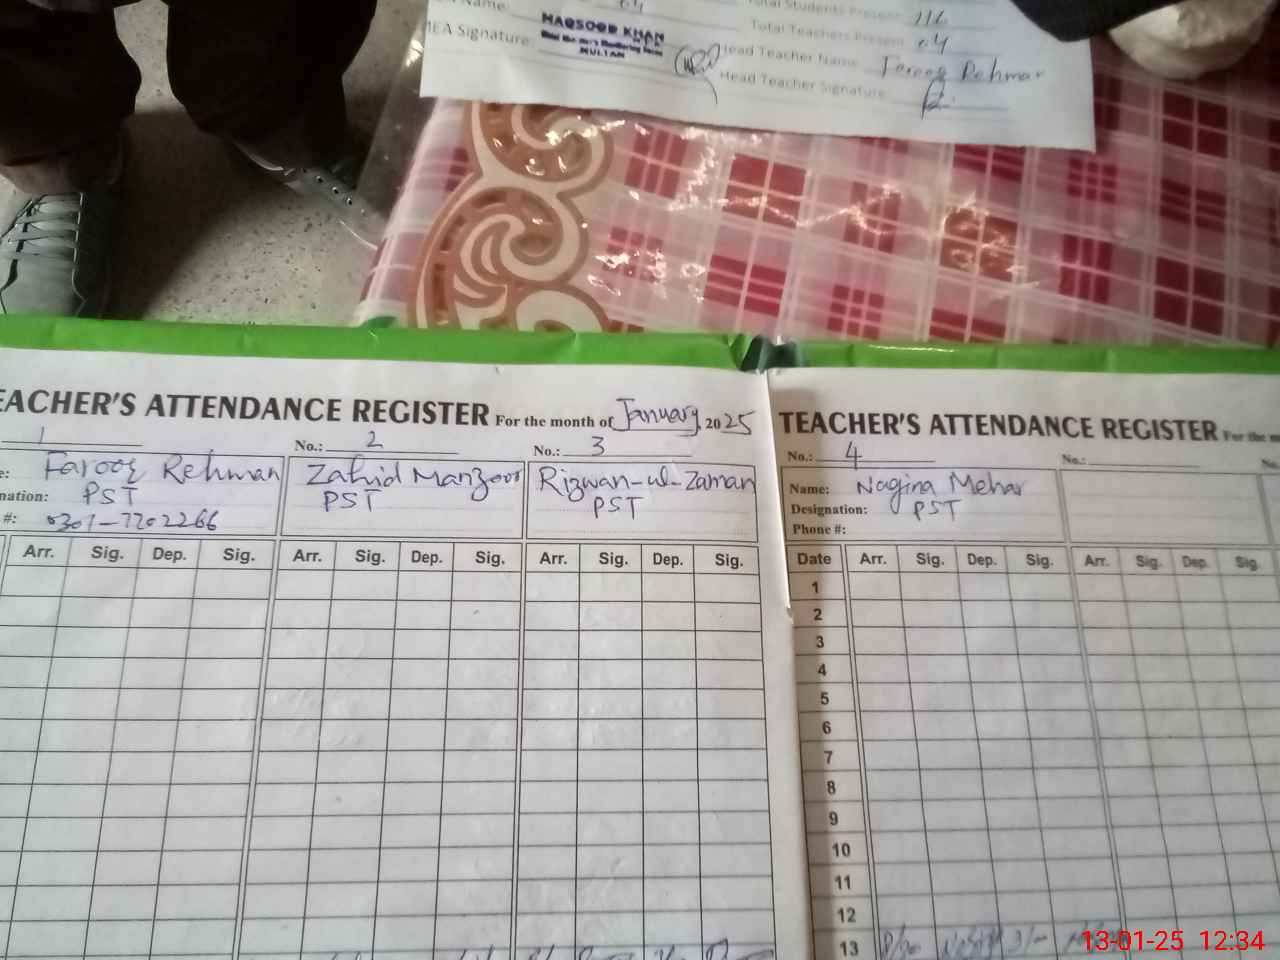 Name: 04
Total Students Present: 116
MEA Signature: MAQSOOD KHAN
MULTAN
Total Teachers Present: 04
Head Teacher Name: Farooq Rehman
Head Teacher Signature:
EACHER'S ATTENDANCE REGISTER For the month of January, 2025
1
No.: 2
No.: 3
e: Farooq Rehman
Zahid Manzoor
Rizwan-ul-Zaman
nation: PST
PST
PST
#: 0301-7202266
Arr. Sig. Dep. Sig. Arr. Sig. Dep. Sig. Arr. Sig. Dep. Sig.
TEACHER'S ATTENDANCE REGISTER For the m
No.: 4
No.:
No.
Name: Nagina Mehar
Designation: PST
Phone #:
Date Arr. Sig. Dep. Sig. Arr. Sig. Dep. Sig.
1
2
3
4
5
6
7
8
9
10
11
12
13
13-01-25 12:34